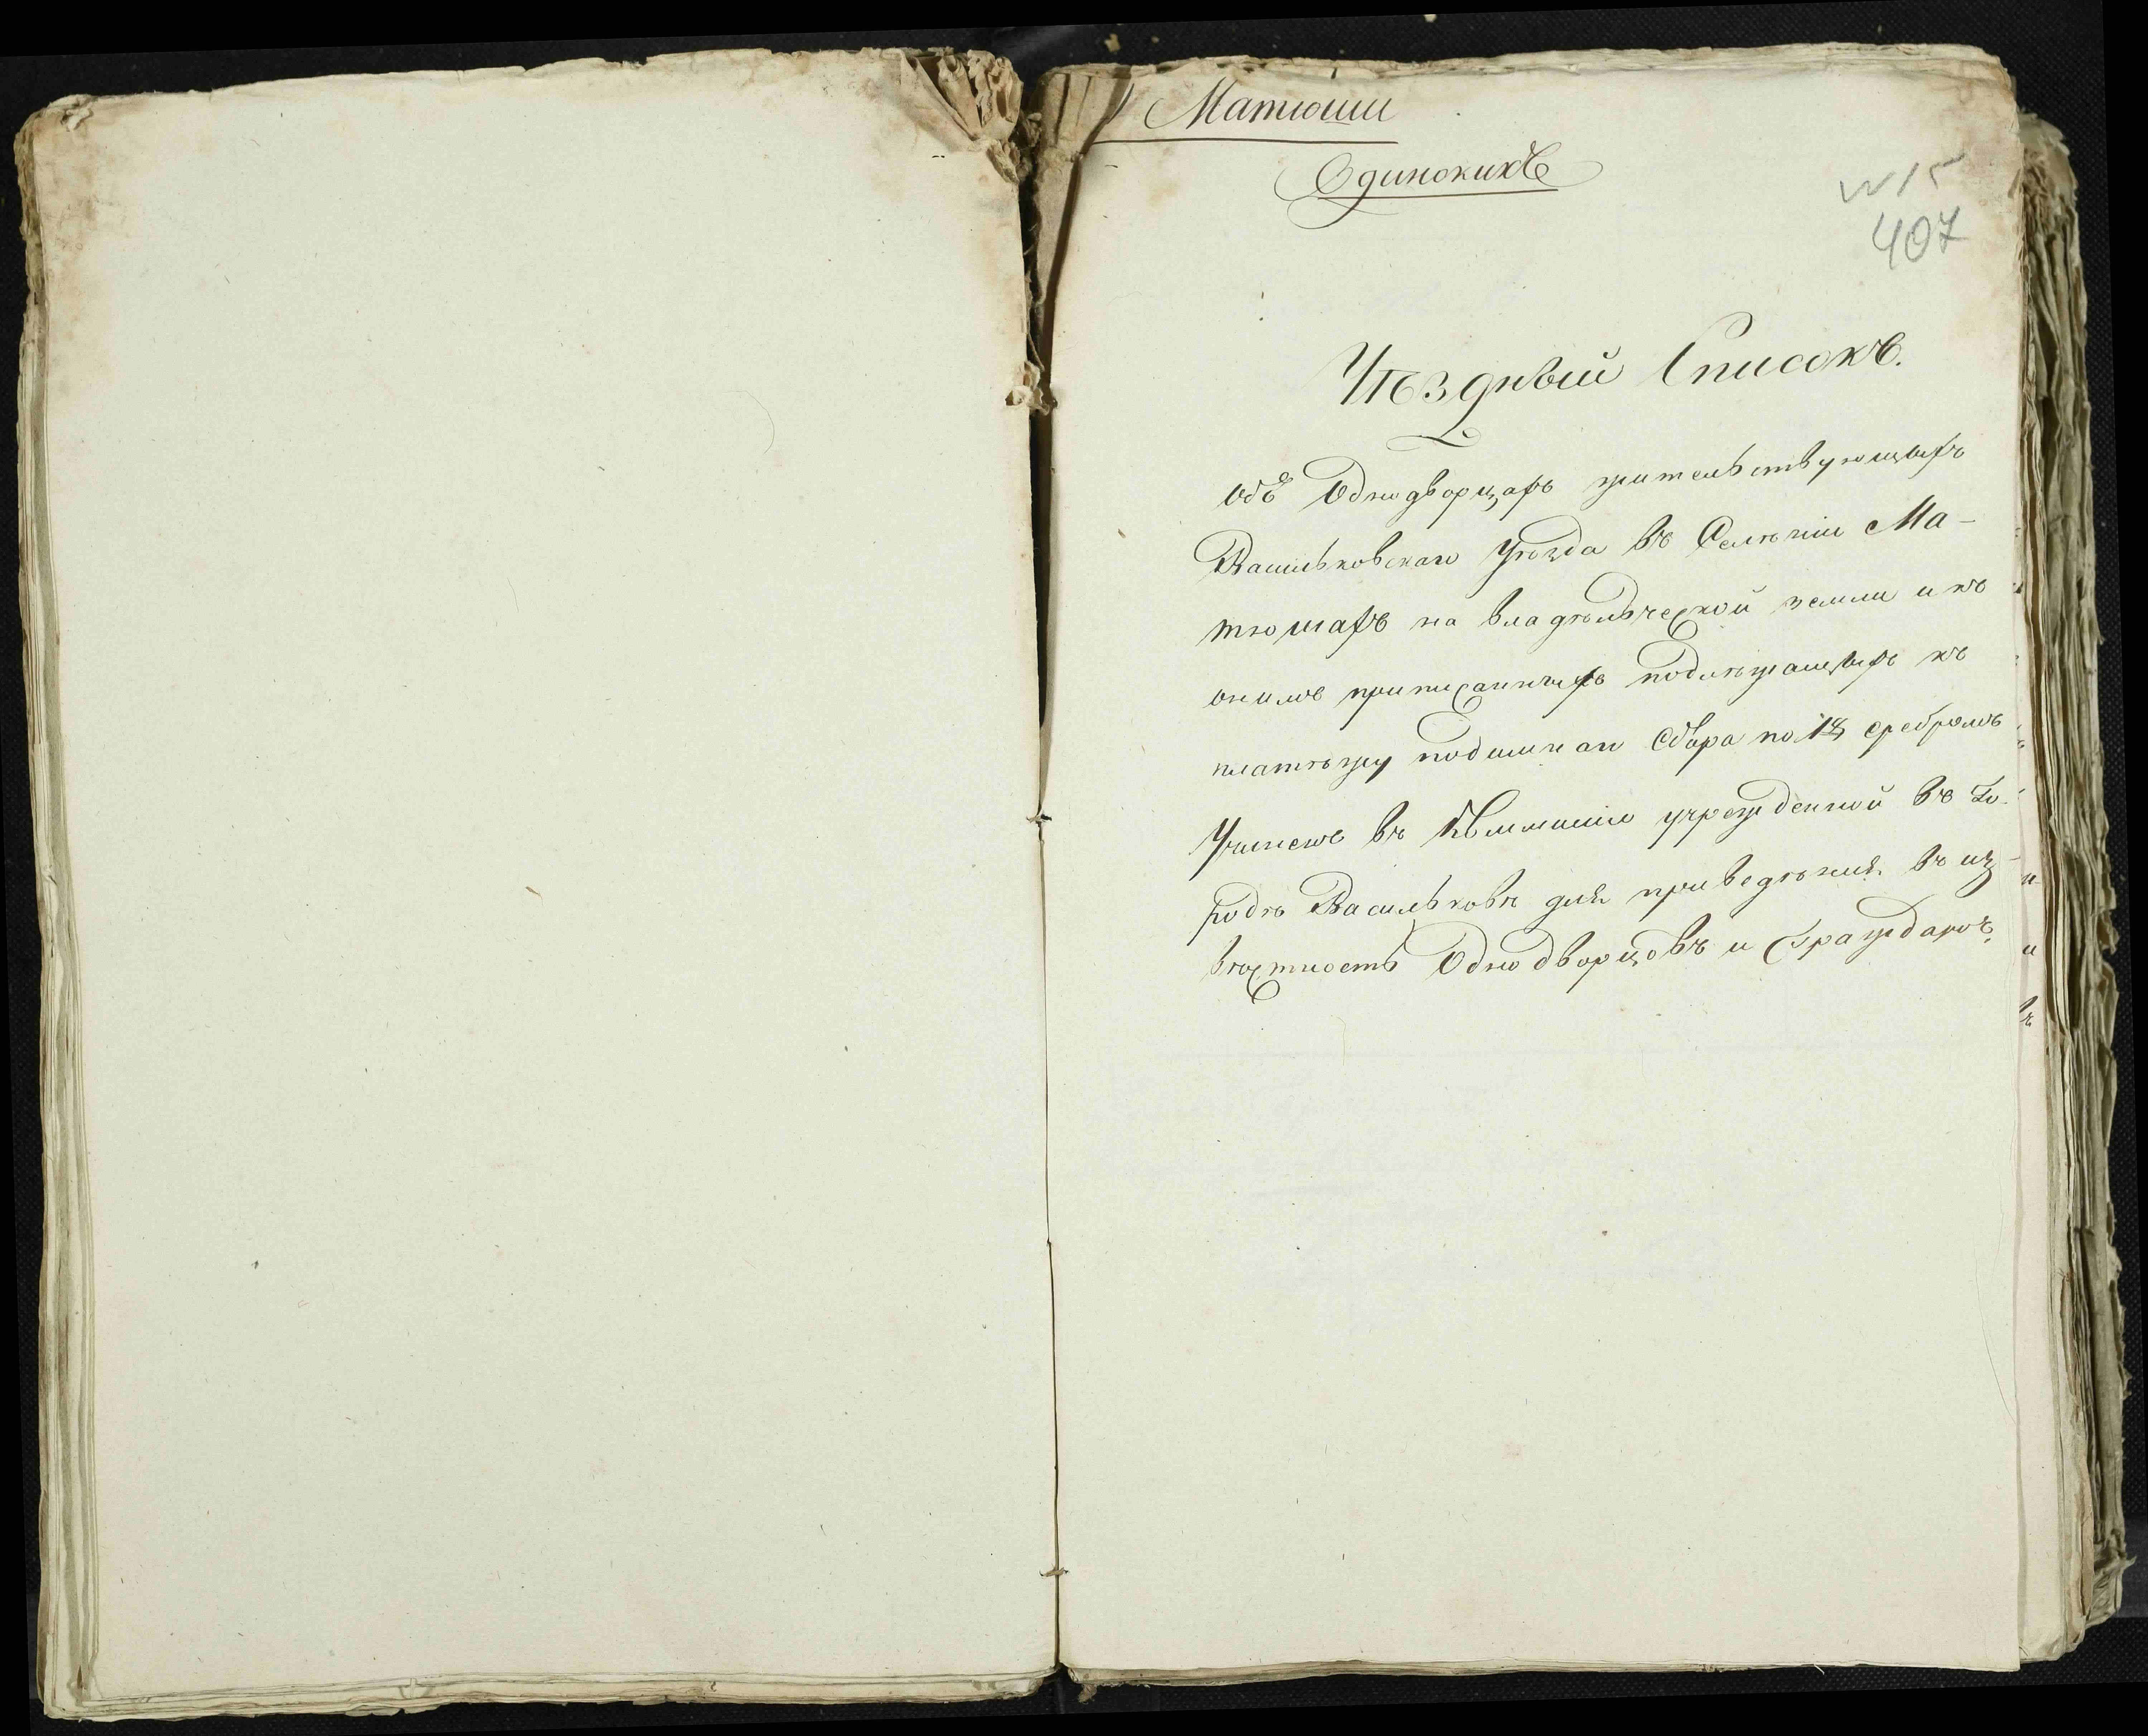 Матюши
Одинокихъ
№15
407
Уѣздный Списокъ.
Объ Однодворцахъ жительствующихъ
Васильковскаго Уѣзда въ Селѣніи Ма-
тюшахъ на владѣльческой земли и къ
онимъ приписанныхъ подлѣжащихъ къ
платѣжу подымнаго Сбора по сребромъ
Учиненъ въ Коммиссіи учрежденной въ Го-
родѣ Васильковѣ для приведѣнія въ из-
вѣстность Однодворцовъ и Гражданъ